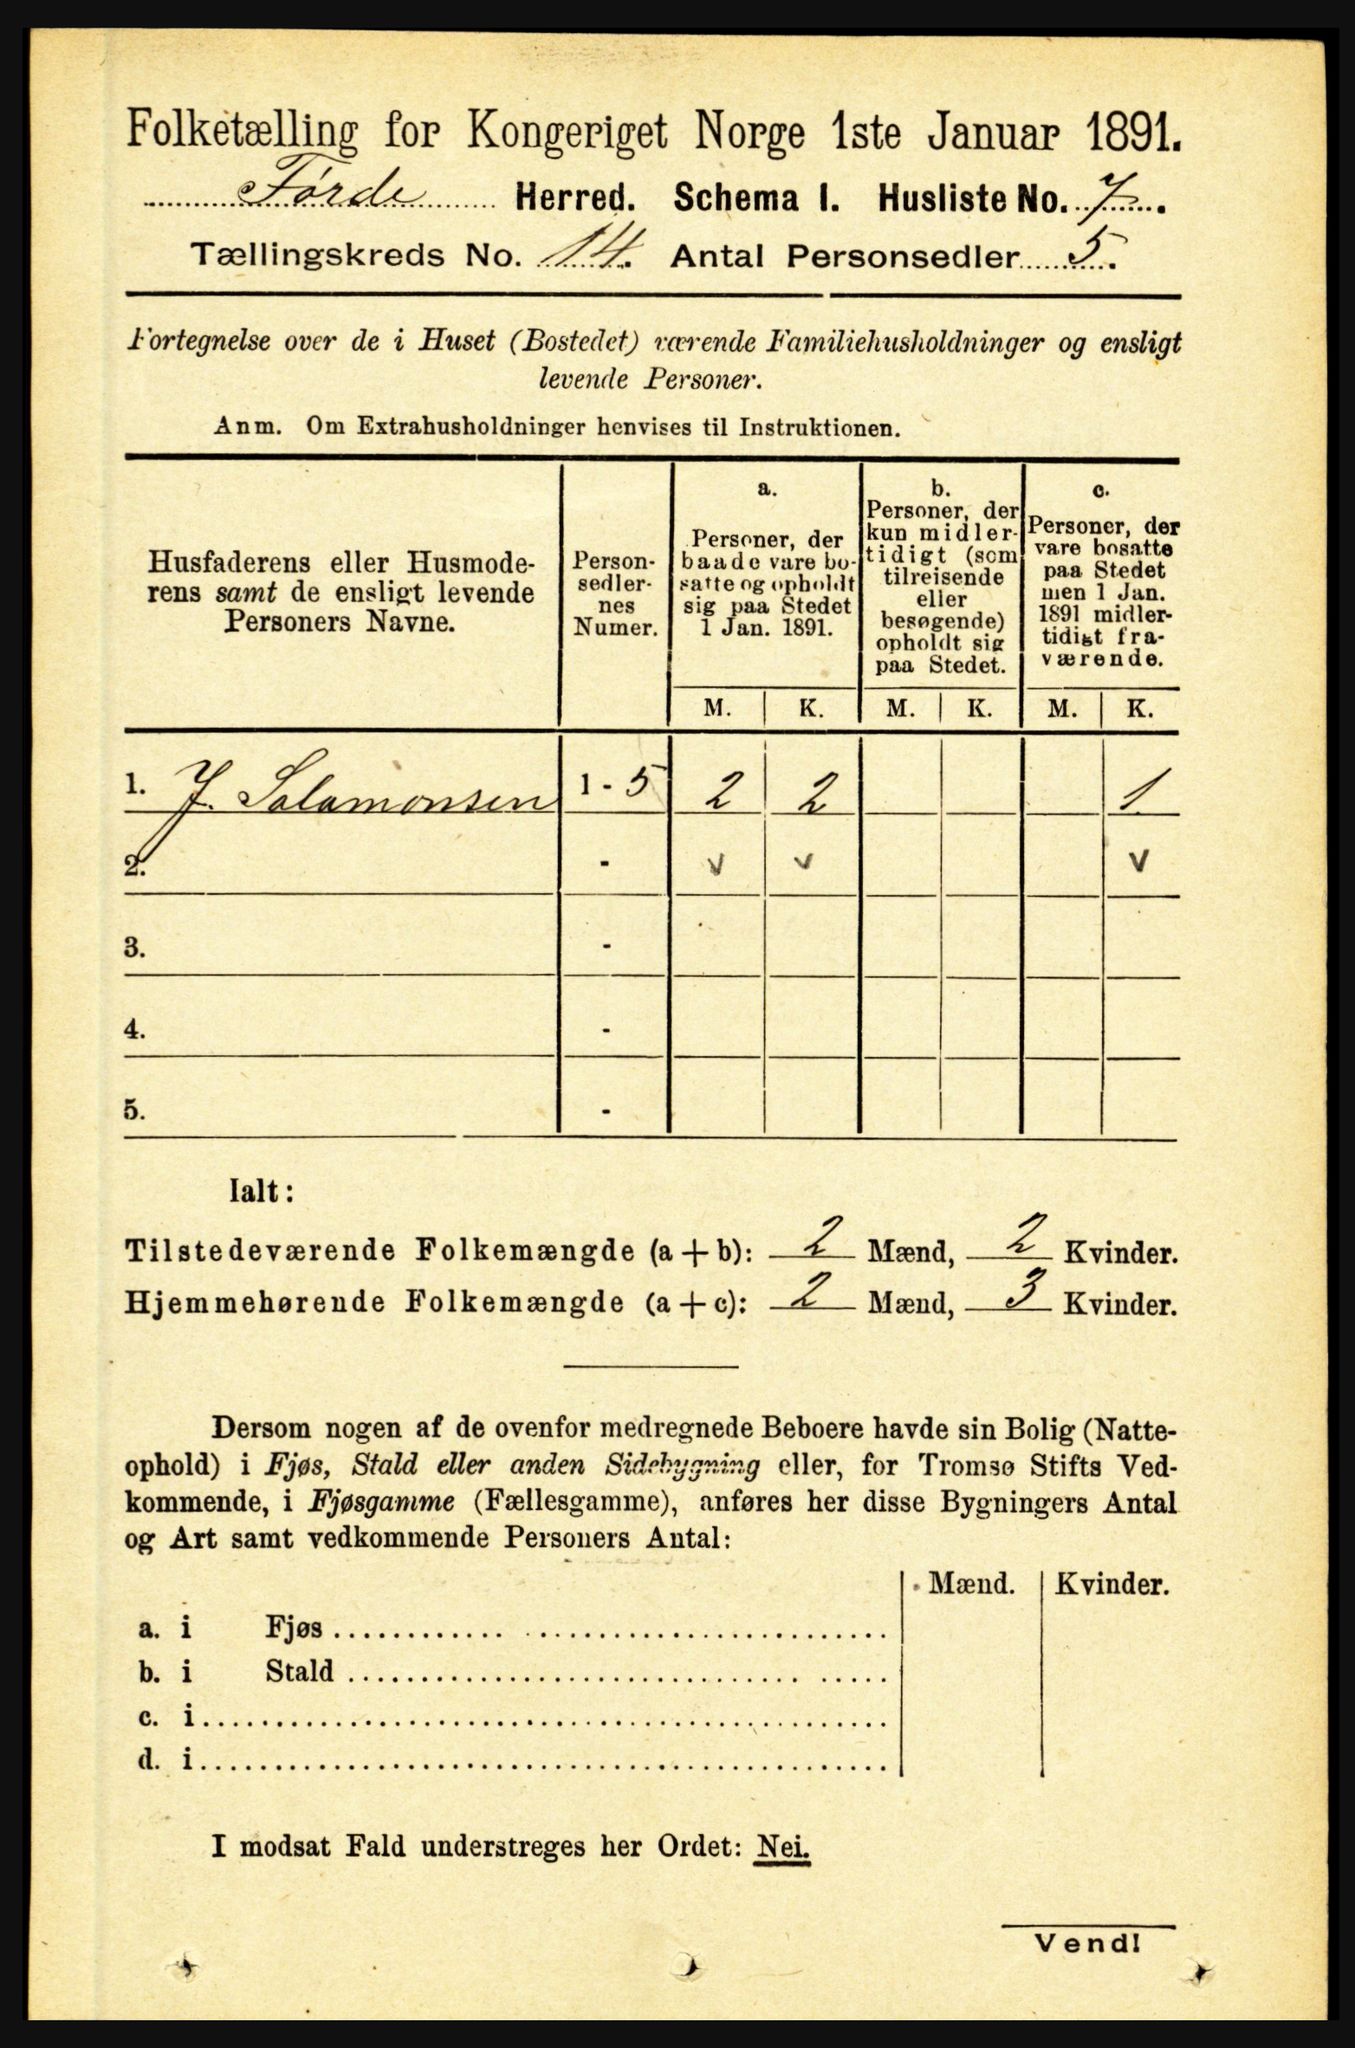 Folketælling for Kongeriget Norge 1ste Januar 1891.
Førde Herred. Schema I. Husliste No. 7.
Tællingskreds No. 14. Antal Personsedler 5.
Fortegnelse over de i Huset (Bostedet) værende Familiehusholdninger og ensligt
levende Personer.
Anm. Om Extrahusholdninger henvises til Instruktionen.
Husfaderens eller Husmode-
rens samt de ensligt levende
Personers Navne.
Person-
sedler-
nes
Numer.
a.
Personer, der
baade vare bo-
satte og opholdt
sig paa Stedet
1 Jan. 1891.
b.
Personer, der
kun midler-
tidigt (som
tilreisende
eller
besøgende)
opholdt sig
paa Stedet.
c.
Personer, der
vare bosatte
paa Stedet
men 1 Jan.
1891 midler-
tidigt fra-
værende.
M. K. M. K. M. K.
1. J. Salamonsen 1 - 5 2 2 1
2. - v v v
3. -
4. -
5. -
Ialt:
Tilstedeværende Folkemængde (a + b): 2 Mænd, 2 Kvinder.
Hjemmehørende Folkemængde (a + c): 2 Mænd, 3 Kvinder.
Dersom nogen af de ovenfor medregnede Beboere havde sin Bolig (Natte-
ophold) i Fjøs, Stald eller anden Sidebygning eller, for Tromsø Stifts Ved-
kommende, i Fjøsgamme (Fællesgamme), anføres her disse Bygningers Antal
og Art samt vedkommende Personers Antal:
Mænd. Kvinder.
a. i Fjøs
b. i Stald
c. i
d. i
I modsat Fald understreges her Ordet: Nei.
Vend!